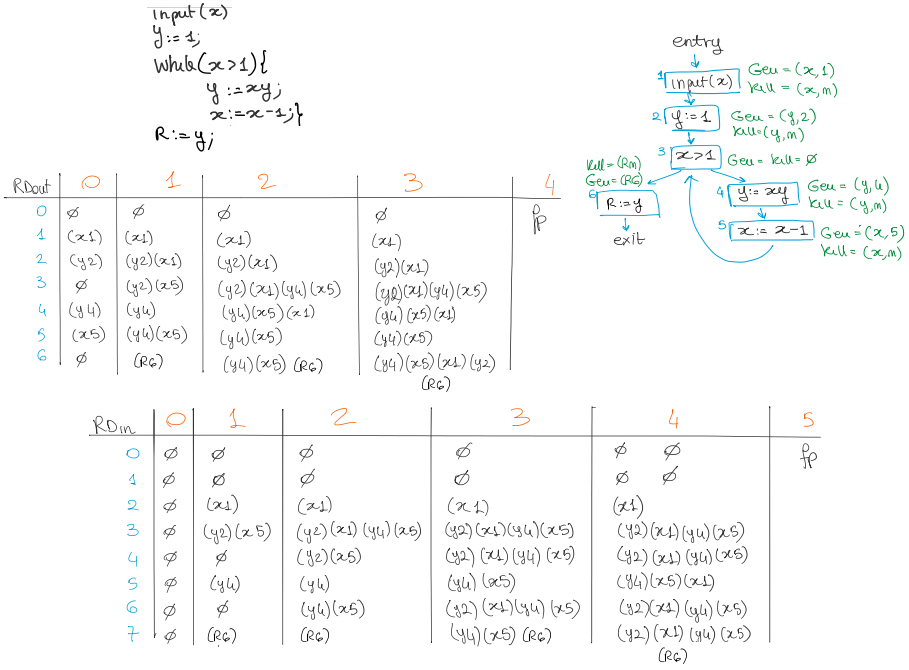 input(x)
y:=1;
while(x>1){
y:=xy;
x:=x-1;}
R:=y;
entry
1 input(x) Gen = (x,1)
Kill = (x,n)
2 y:=1 Gen = (y,2)
Kill=(y,n)
3 x>1 Gen = Kill = ∅
Kill=(Rn)
Gen=(R6)
6 R:=y
exit
4 y:=xy Gen = (y,4)
Kill = (y,n)
5 x:=x-1 Gen = (x,5)
Kill = (x,n)
RDout 0 1 2 3 4
0 ∅ ∅ ∅ ∅ fp
1 (x1) (x1) (x1) (x1)
2 (y2) (y2)(x1) (y2)(x1) (y2)(x1)
3 ∅ (y2)(x5) (y2)(x1)(y4)(x5) (y2)(x1)(y4)(x5)
4 (y4) (y4) (y4)(x5)(x1) (y4)(x5)(x1)
5 (x5) (y4)(x5) (y4)(x5) (y4)(x5)
6 ∅ (R6) (y4)(x5)(R6) (y4)(x5)(x1)(y2)
(R6)
RDin 0 1 2 3 4 5
0 ∅ ∅ ∅ ∅ ∅ ∅ fp
1 ∅ ∅ ∅ ∅ ∅ ∅
2 ∅ (x1) (x1) (x1) (x1)
3 ∅ (y2)(x5) (y2)(x1)(y4)(x5) (y2)(x1)(y4)(x5) (y2)(x1)(y4)(x5)
4 ∅ ∅ (y2)(x5) (y2)(x1)(y4)(x5) (y2)(x1)(y4)(x5)
5 ∅ (y4) (y4) (y4)(x5) (y4)(x5)(x1)
6 ∅ ∅ (y4)(x5) (y2)(x1)(y4)(x5) (y2)(x1)(y4)(x5)
7 ∅ (R6) (R6) (y4)(x5)(R6) (y2)(x1)(y4)(x5)
(R6)